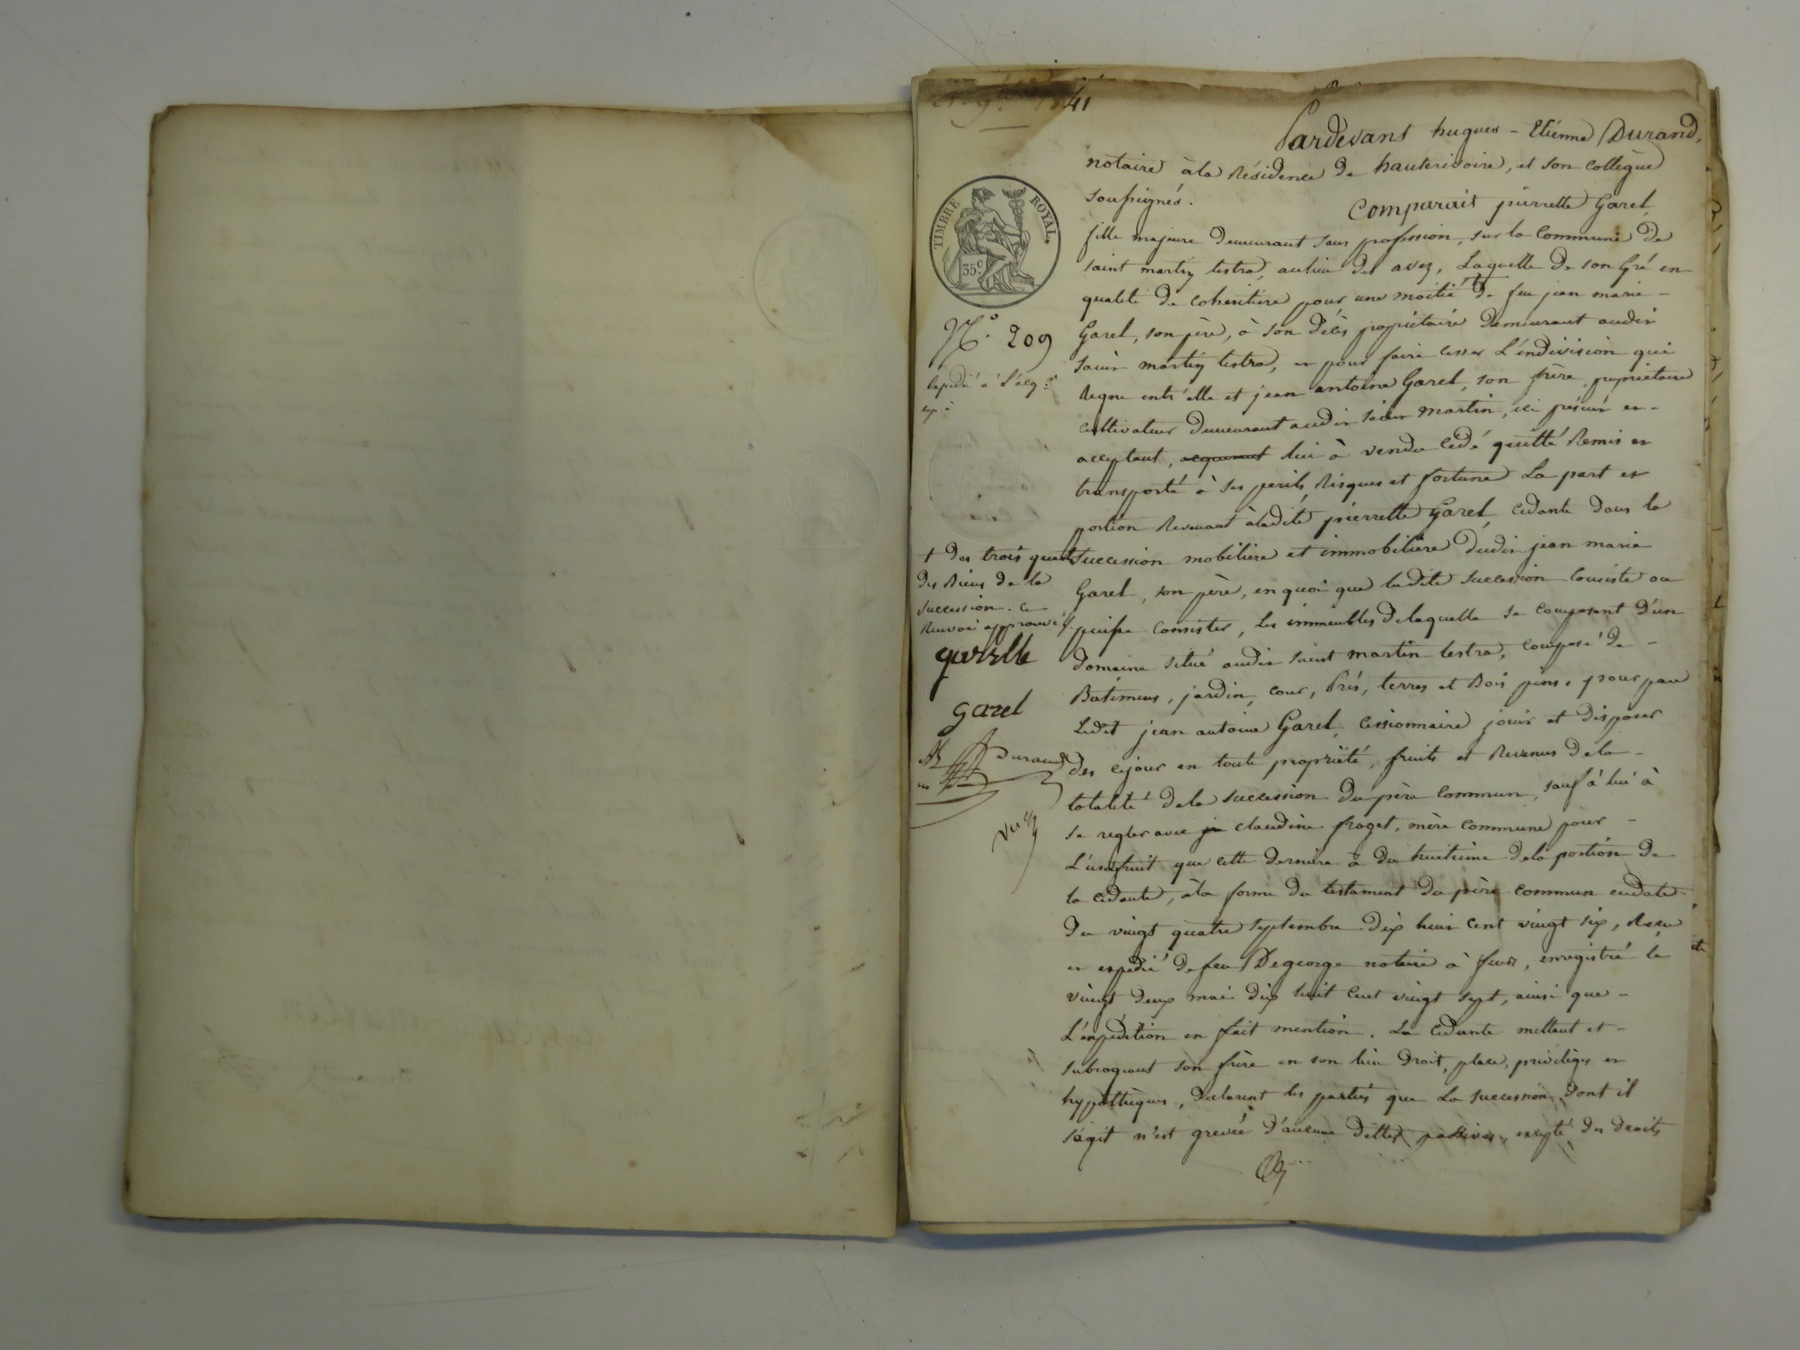 41
Pardevant hugues - Etiénne Durand,
notaire à la Résidence de hauterivoire, et son collègue
soussignés.
Comparait pierrette Garel,
fille majeure demeurant sans profession, sur la Commune de
saint martin lestra, au lieu de avez, Laquelle de son Gré en
qualité de cohéritière pour une moitié de feu jean marie -
Garel, son père, à son décès propriétaire demeurant audit
saint martin lestra, et pour faire cesser L'indivision qui
Regne entr'elle et jean antoine Garel, son frère, propriétaire
cultivateur demeurant audit saint martin, ici présent et -
acceptant, acquereur lui à vendu cédé quitté Remis et
transporté à ses perils, Risques et fortune La part et
portion Revenant à ladite pierrette Garel, cédante dans la
succession mobilière et immobilière dudit jean marie
Garel, son père, en quoi que ladite succession Consiste ou
puisse Consister, les immeubles de laquelle se composent d'un
domaine situé audit saint martin lestra, composé de -
Batimens, jardin, cour, Prés, terres et Bois pins, pour par
Ledit jean antoine Garel, cessionnaire jouir et disposer
des cejour en toute propriété, fruits et Revenus de la -
totalité de la succession du père commun, sauf à lui à
se regler avec je claudine froget, mère commune pour -
L'usufruit que cette dernière à du huitième de la portion de
la cédante, à la forme du testament du père commun en date -
du vingt quatre septembre dix huit cent vingt six, Reçu
et expédié de feu Degeorge notaire à feurs, enregistré le
vingt deux mai dix huit cent vingt sept, ainsi que -
L'expédition en fait mention. La Cédante mettant et -
subrogeant son frère en son lieu Droit, place, privilèges et
hypothèques, Déclarent les parties que La succession dont il
s'agit n'est grevée d'aucune dettes passives, excepté des droits
TIMBRE ROYAL.
35c
N.° 209
Expédié à l'acq.r
+ des trois quart
des Biens de la
succession. ce
Renvoi approuvé
garel
Durand